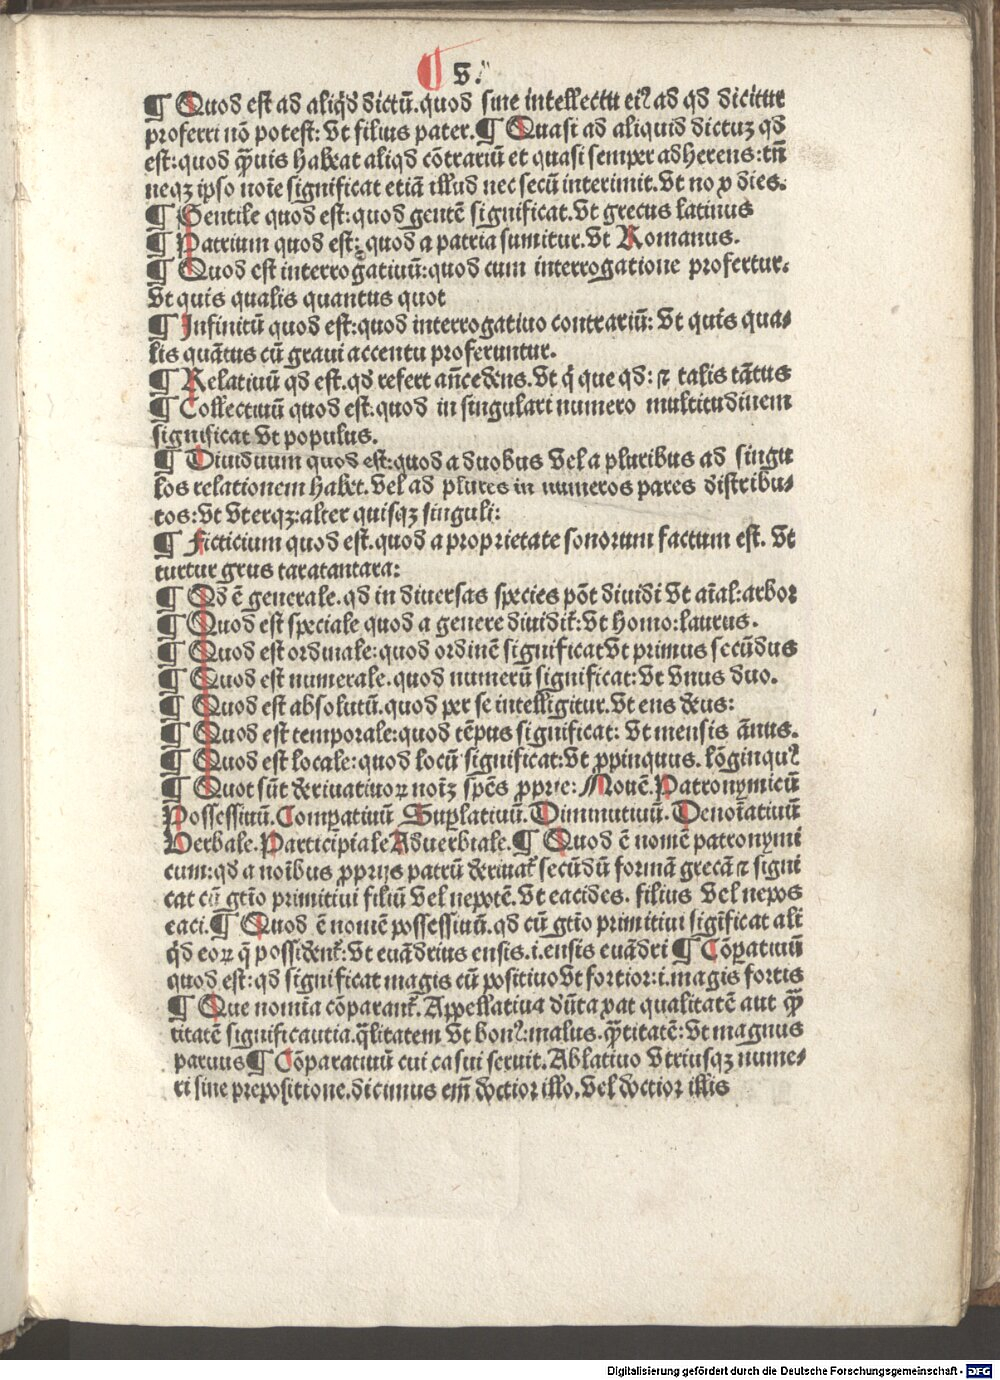 ¶ 5.
¶ Quod est ad aliqd̄ dictū. quod sine intellectu eiꝰ ad qd̄ dicitur
proferri nō potest: Vt filius pater. ¶ Quasi ad aliquid dictuꝫ qd̄
est: quod q̄uis habeat aliqd̄ cōtrariū et quasi semper adherens: tn̄
neqꝫ ipso noīe significat etiā illud nec secū interimit. Vt nox dies.
¶ Gentile quod est: quod gentē significat. Vt grecus latinus
¶ Patrium quod est: quod a patria sumitur. Vt Romanus.
¶ Quod est interrogatiuū: quod cum interrogatione profertur.
Vt quis qualis quantus quot
¶ Infinitū quod est: quod interrogatiuo contrariū: Vt quis qua-
lis quātus cū graui accentu proferuntur.
¶ Relatiuū qd̄ est. qd̄ refert an̄cedens. Vt q̇ que qd̄: ⁊ talis tātus
¶ Collectiuū quod est: quod in singulari numero multitudinem
significat Vt populus.
¶ Diuiduum quod est: quod a duobus Vel a pluribus ad singu
los relationem habet. Vel ad plures in numeros pares distribu-
tos: Vt Vterqꝫ: alter quisqꝫ singuli:
¶ Ficticium quod est. quod a proprietate sonorum factum est. Vt
turtur grus taratantara:
¶ Qd ē generale. qd̄ in diuersas species pōt diuidi Vt aīal: arbor
¶ Quod est speciale quod a genere diuidit̄: Vt homo: laurus.
¶ Quod est ordinale: quod ordinē significat Vt primus secūdus
¶ Quod est numerale. quod numerū significat: Vt Vnus duo.
¶ Quod est absolutū. quod per se intelligitur. Vt ens deus:
¶ Quod est temporale: quod tēpus significat: Vt mensis ānus.
¶ Quod est locale: quod locū significat: Vt ꝓpinquus. lōginquꝰ
¶ Quot sūt deriuatiuoꝝ noīꝫ spēs ꝓprie: Nouē. Patronymicū
Possessiuū. Comꝑatiuū Suꝑlatiuū. Diminutiuū. Denoīatiuū
Verbale. Participiale Aduerbiale. ¶ Quod ē nomē patronymi
cum: qd̄ a noībus ꝓprijs patrū deriuat̄ secūdū formā grecā ⁊ signi
cat cū gtīo primitiui filiū Vel nepotē. Vt eacides. filius Vel nepos
eaci. ¶ Quod ē nomē possessiuū. qd̄ cū gtīo primitiui sigīficat ali
qd̄ eoꝝ q̄ possident̄: Vt euādrius ensis. i. ensis euādri ¶ Cōꝑatiuū
quod est: qd̄ significat magis cū positiuo Vt fortior: i. magis fortis
¶ Que nomīa cōparant̄. Appellatiua dūtaxat qualitatē aut q̄n
titatē significantia. q̄litatem Vt bonꝰ: malus. q̄titatē: Vt magnus
paruus ¶ Cōparatiuū cui casui seruit. Ablatiuo Vtriusqꝫ nume-
ri sine prepositione. dicimus em̄ doctior illo. Vel doctior illis
Digitalisierung gefördert durch die Deutsche Forschungsgemeinschaft - DFG